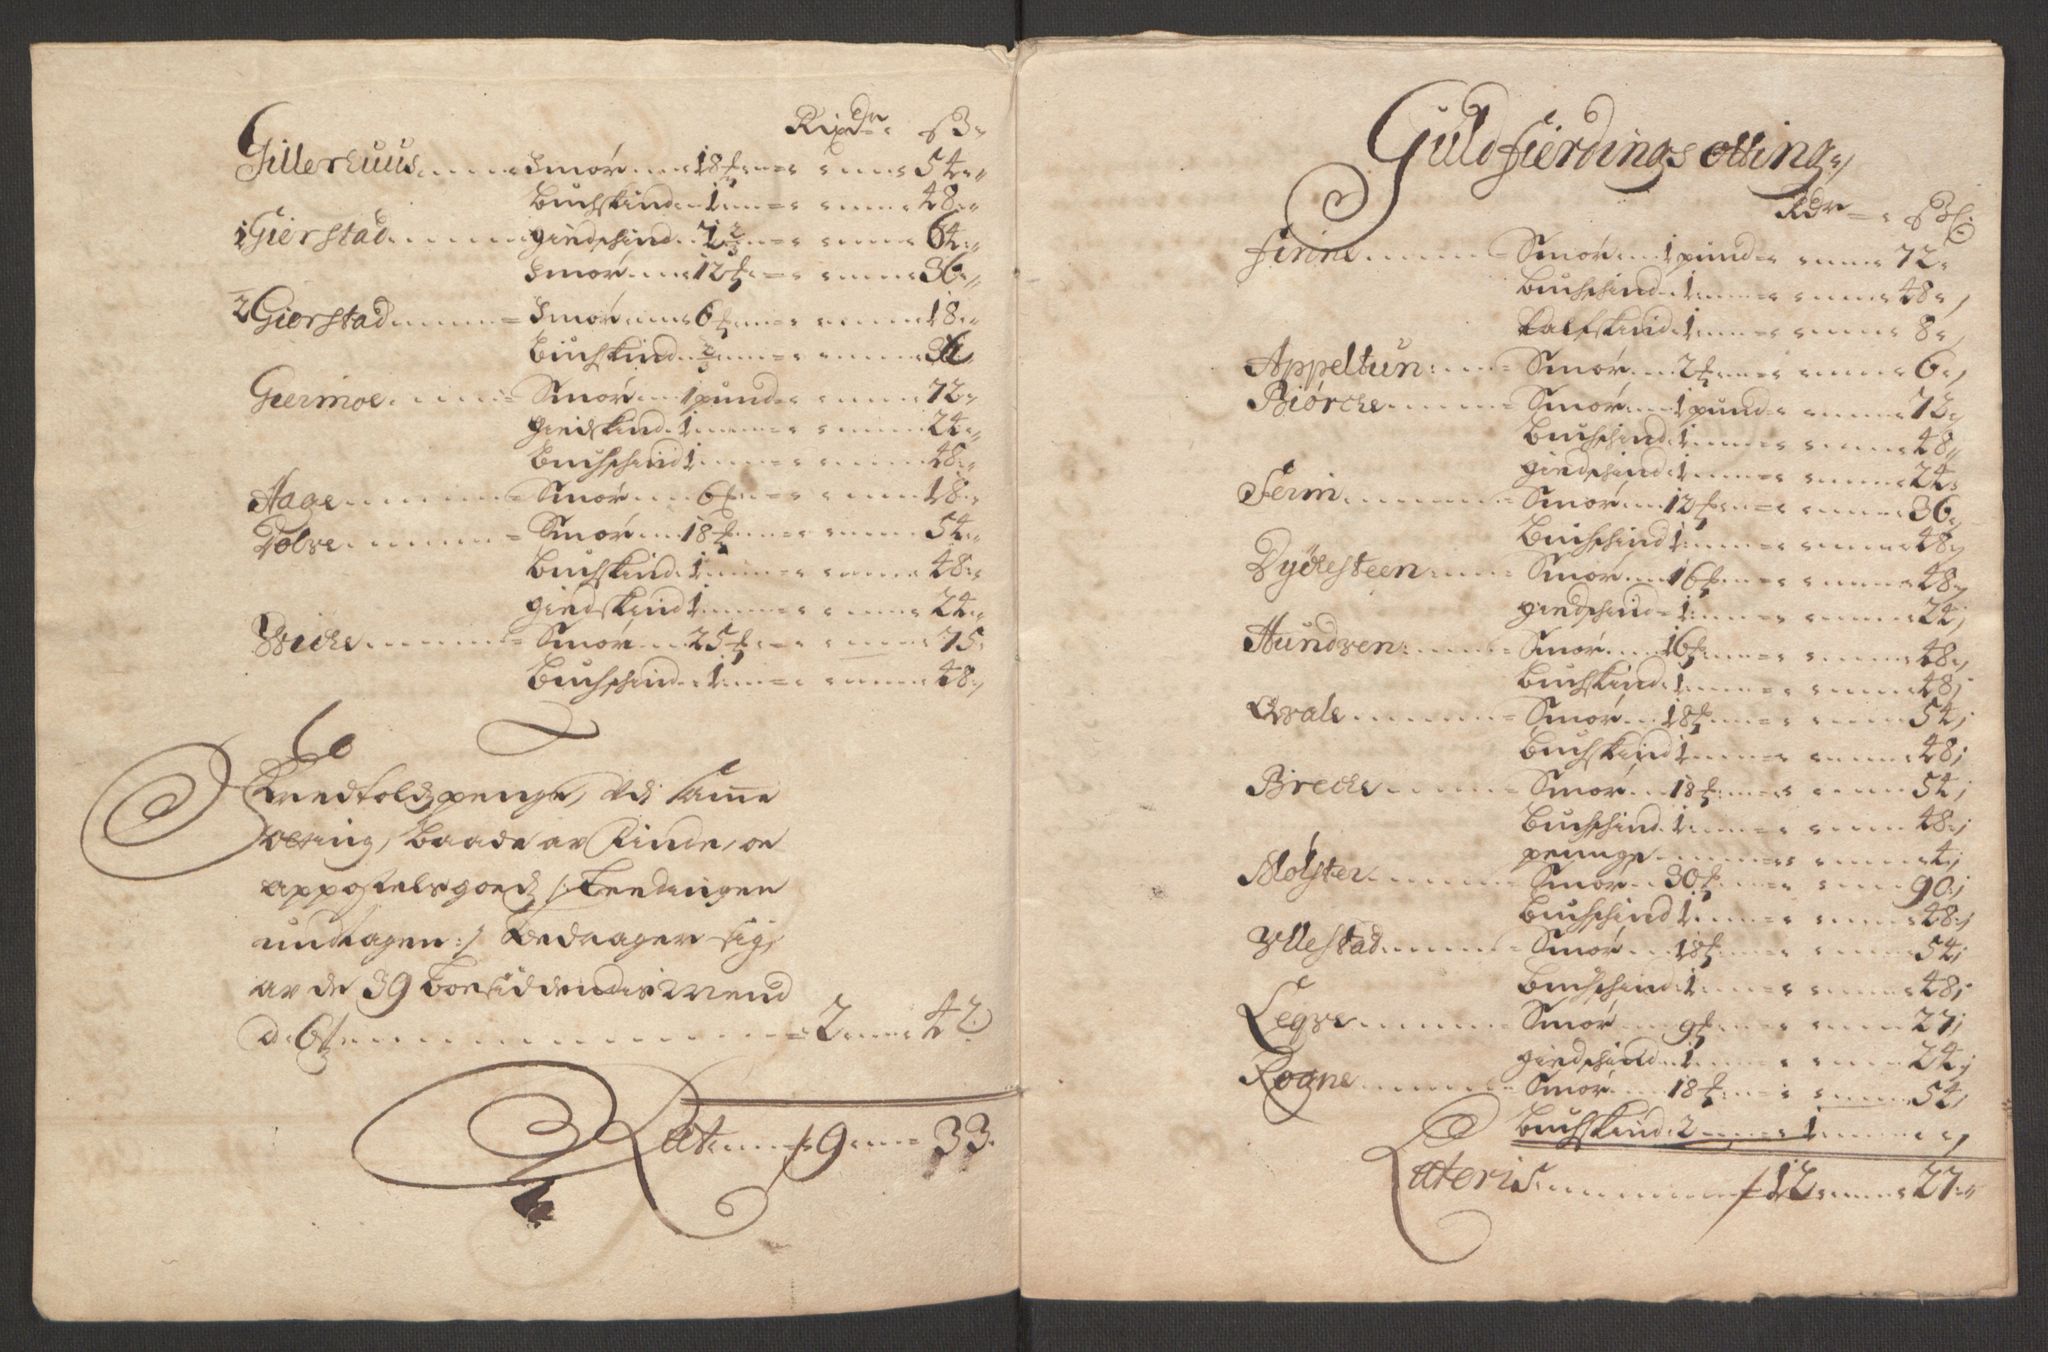 Rixdr ß
Gillerhuus Smør 18 54
Buchskind 1 48
1 Gierstad giedschind 2 2/3 64
Smør 12 36
2 Gierstad Smør 6 18
Buchskind 36
Giermoe Smør 1 pund 72
giedskind 1 24
Buchschind 1 48
Hage Smør 6 18
Tolve Smør 18 54
Buchskind 1 48
giedskind 1 24
Wiche Smør 25 75
Buchschind 1 48
penge, udi samme
baade av
appostelsgoed
undtagen:/ bedrager sig,
av de 39 mend
a 6 2 42
Lat 19 33
Guldfierdings otting
Rdr ß
Finne Smør 1 pund 72
Buchschind 1 48
Kalfskind 1 8
Appeltun Smør 2 6
Biørche Smør 1 pund 72
Buchschind 1 48
giedschind 1 24
Seim Smør 12 36
Buchschind 1 48
Dychesteen Smør 16 48
giedschind 1 24
Hundven Smør 16 48
Buchskind 1 48
Qvale Smør 18 54
Buchskind 1 48
Breche Smør 18 54
Buchschind 1 48
penge 4
Mølster Smør 30 90
Buchschind 1 48
Ullestad Smør 18 54
Buchschind 1 48
Legve Smør 9 27
giedschind 1 24
Rogne Smør 18 54
Buchskind 2 1
Lateris 12 27